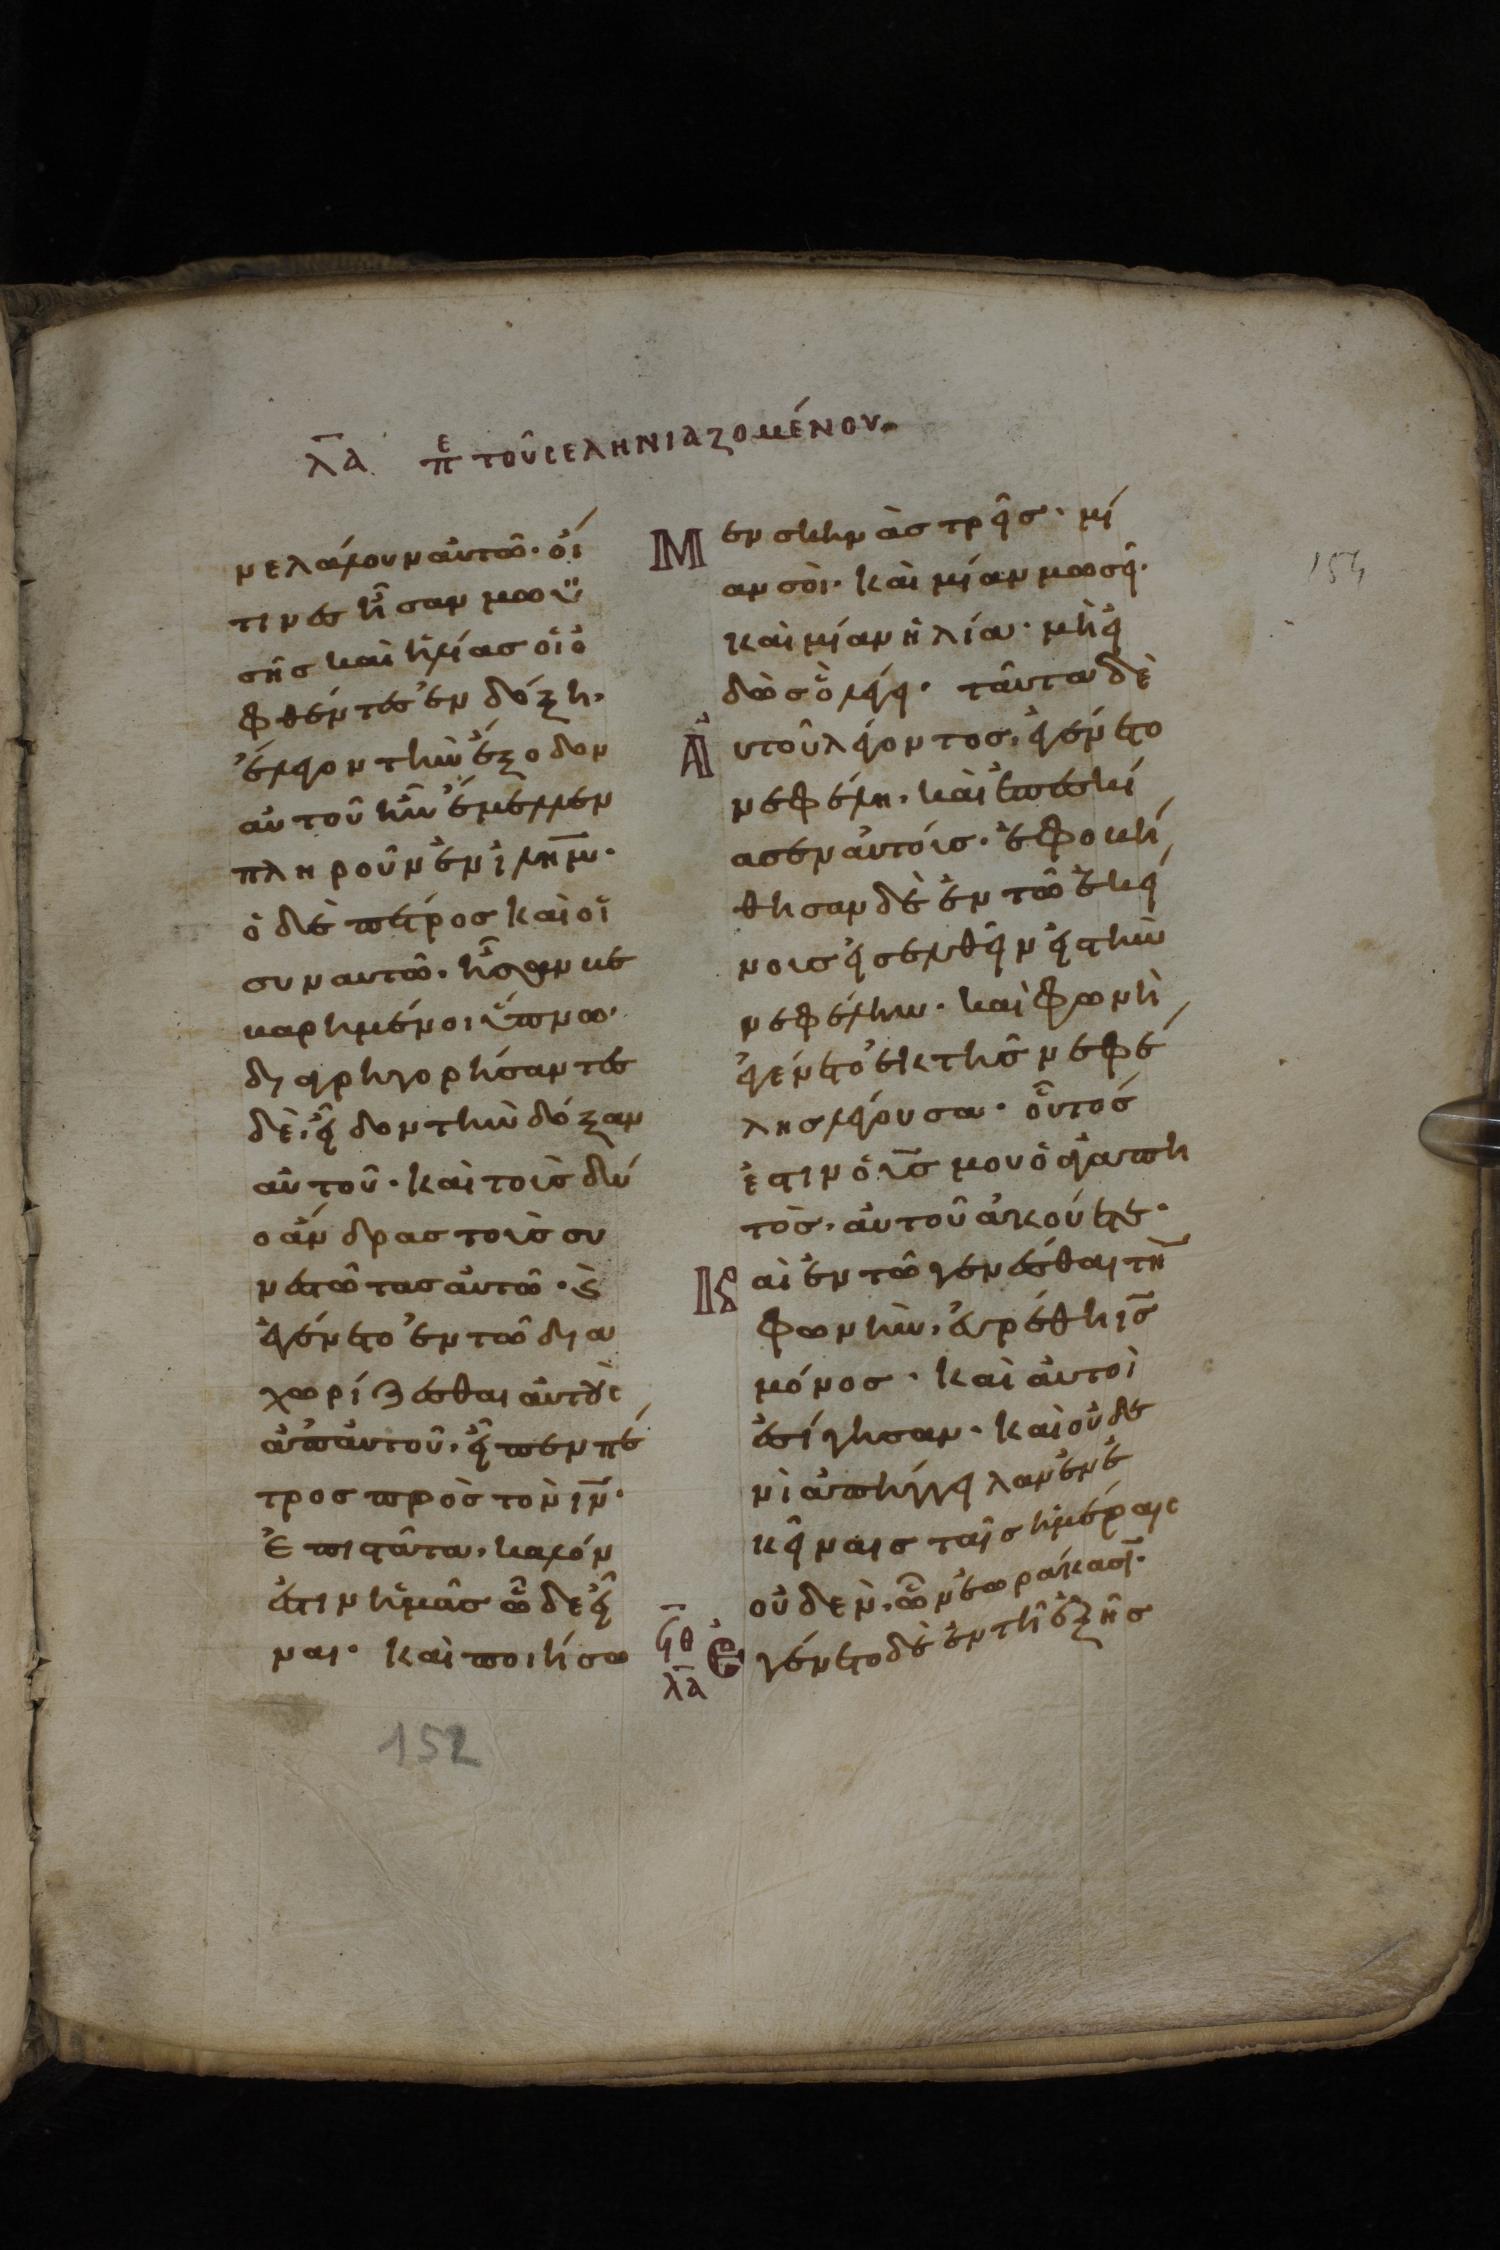 λ̅α̅ πε τοῦ σεληνιαζομένου.
νελάλουν αὐτῶ· οἵ
τινες ἦσαν μωϋ
σῆς καὶ ἡλίας οἱ ὀ
φθέντες ἐν δόξη,
ἔλεγον τὴν ἔξοδον
αὐτοῦ ἣν ἔμελλεν
πληροῦν ἐν ἰλη̅μ̅·
ὁ δὲ πέτρος καὶ οἱ
συν αυτῶ, ἦσαν κε
καρημένοι ὕπνω·
διαγρηγορήσαντες
δὲ, εἶδον τὴν δόξαν
αὐτοῦ· καὶ τοὺς δύ
ο ἄνδρας τοὺς συ
νεστῶτας αὐτῶ· ϗ
ἐγένετο ἐν τῶ δια
χωρίζεσθαι αὐτοὺς
ἀπ' αὐτοῦ, εἶπεν πέ
τρος πρὸς τὸν ι̅ν̅·
Ἐπιστάτα, καλόν
ἐστιν ἡμᾶς ὧδε εἶ
ναι· καὶ ποιήσω
μεν σκηνὰς τρεῖς· μί
αν σοὶ· καὶ μίαν μωσεῖ·
καὶ μίαν ἠλία· μὴ εἰ
δὼς ὃ λέγει· ταῦτα δὲ
Αὐτοῦ λέγοντος, ἐγένετο
νεφέλη, καὶ ἐπεσκί
ασεν αὐτοίς· ἐφοβή
θησαν δὲ ἐν τῶ ἐκεί
νοις εἰσελθεῖν εἰς τὴν
νεφέλην· καὶ φωνὴ
ἐγένετο ἐκ τῆς νεφέ
λης λέγουσα· οὗτός
ἐστιν ὁ υ̅ς̅ μου ὁ ἀγαπη
τὸς, αὐτοῦ ἀκούετε·
Καὶ ἐν τῶ γενέσθαι τὴ̅
φωνὴν, εὑρέθη ι̅ς̅
μόνος· καὶ αὐτοὶ
ἐσίγησαν· καὶ οὐδε
νὶ ἀπήγγειλαν ἐν ἐ
κεῖναις ταῖς ἡμέραις
οὐδὲν, ὧν ἑωράκασι̅·
ϟ̅θ̅ Ἐγένετο δὲ ἐν τῆ ἑξῆς
λ̅α̅
154
152